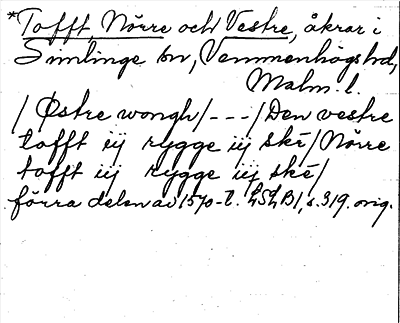 *Tofft, Nörre och Vestre, åkrar i
Simlinge sn, Vemmenhögs hd,
Malm. l.
/ Østre wongh / - - - / Den vestre
tofft iij rygge iij skē / Nörre
tofft iij rygge iij skē /
förra delen av 1570-t. LSLB1, s. 319. orig.